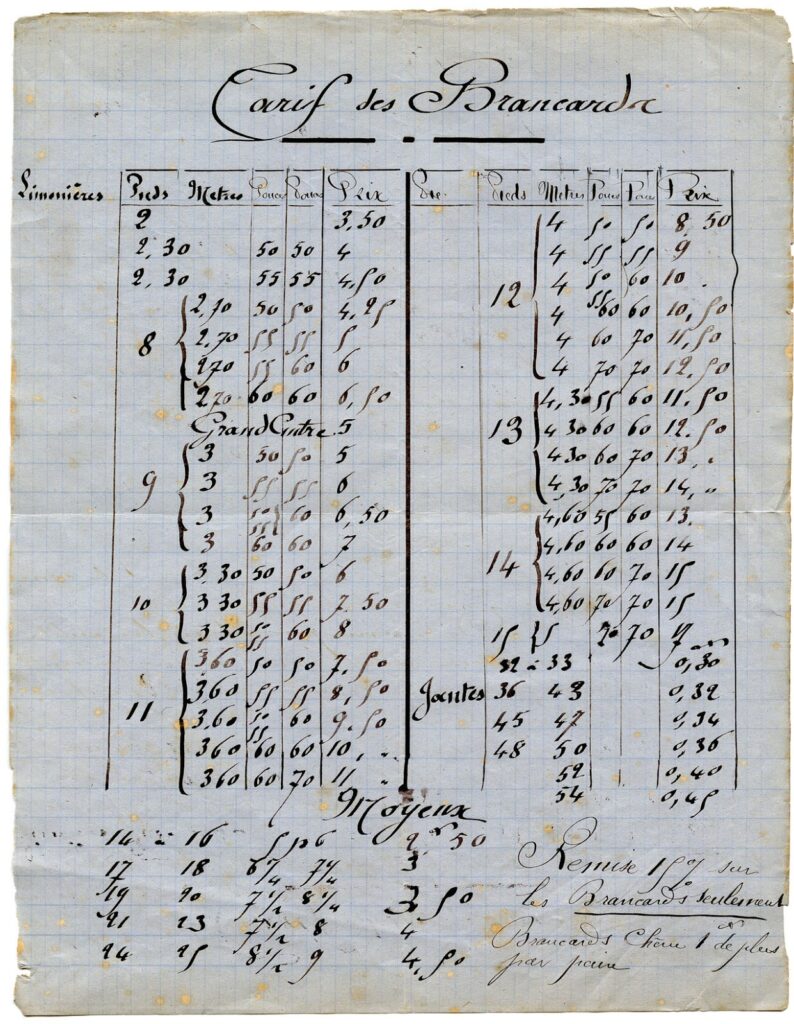 Tarif des Brancards
Limonières Pieds Metres Pouces Pouces Prix
2 3,50
2,30 50 50 4
2,30 55 55 4,50
8 2,70 50 50 4,25
2,70 55 55 5
2,70 55 60 6
2,70 60 60 6,50
Grand Cintre 5
9 3 50 50 5
3 55 55 6
3 50 55 60 6,50
3 60 60 7
10 3 30 50 50 6
3 30 55 55 7,50
3 30 50 55 60 8
11 3 60 50 50 7,50
3,60 55 55 8,50
3,60 50 55 60 9,50
3 60 60 60 10 , "
3 60 60 70 11 "
Pieds Metres Pouces Pouces Prix
12 4 50 50 8,50
4 55 55 9
4 50 55 60 10 .
4 60 60 10,50
4 60 70 11,50
4 70 70 12,50
13 4,30 55 60 11,50
4 30 60 60 12,50
4 30 60 70 13 "
4,30 70 70 14, "
14 4,60 55 60 13.
4,60 60 60 14
4,60 60 70 15
4,60 70 70 15
15 5 70 70 17
32 à 33 0,30
Jantes 36 43 0,32
45 47 0,34
48 50 0,36
52 0,40
54 0,45
Moyeux
14 à 16 5 p 6 2 fr 50
17 18 6 1/4 7 1/4 3
19 20 7 1/2 8 1/4 3,50
21 23 7 1/2 8 4
24 25 8 1/2 9 4,50
Remise 15 % sur
les Brancards seulement
Brancards Chêne 1 fr de plus
par paire